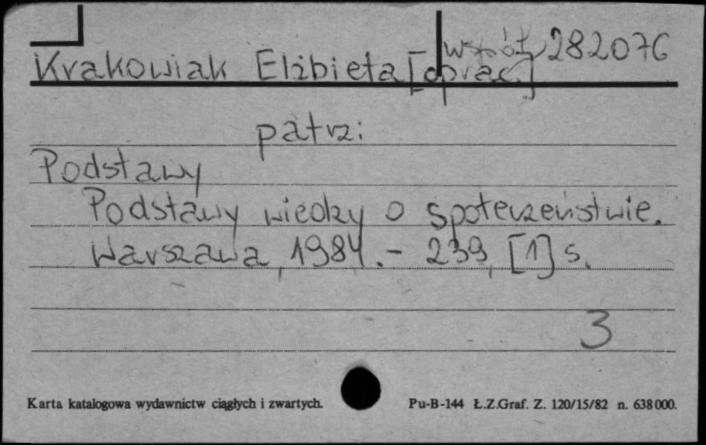 Krakowiak Elżbieta [oprac.] współ 282076
patrz:
Podstawy
Podstawy wiedzy o społeczeństwie.
Warszawa, 1984. - 239, [1] s.
3
Karta katalogowa wydawnictw ciągłych i zwartych. Pu-B-144 Ł.Z.Graf. Z. 120/15/82 n. 638000.